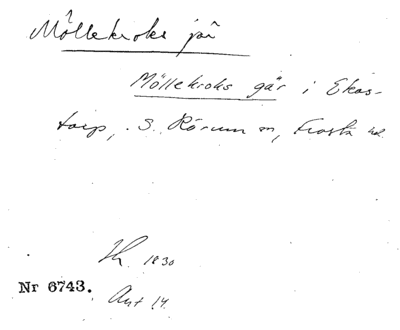 Möllekroks jär
Möllekroks går i Ekas-
torp, S. Rörum sn, Frosta hd.
1830
Nr 6743.
Ant 14.